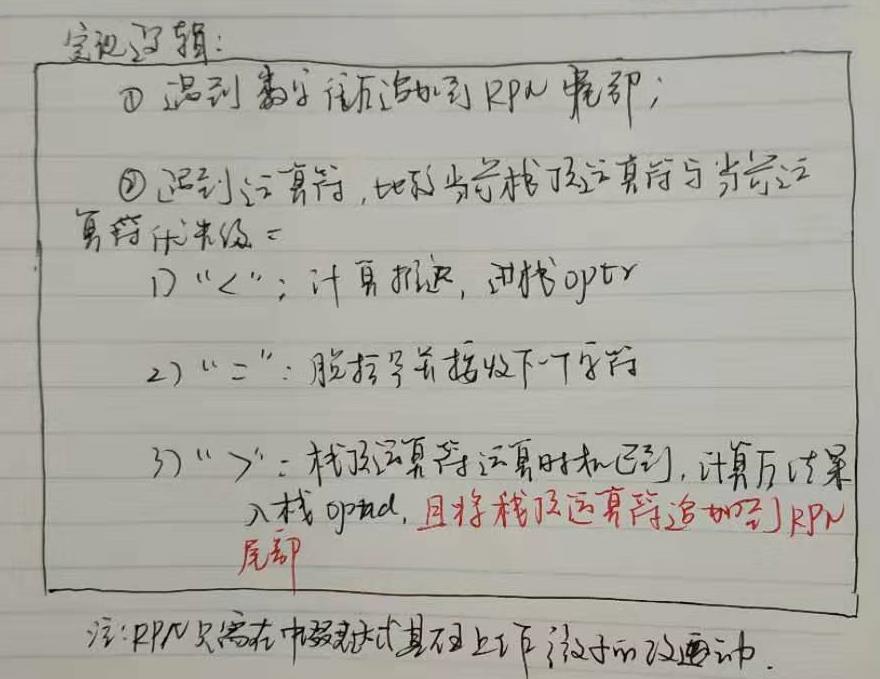 实现逻辑:
① 遇到数字往后追加到RPN尾部;
② 遇到运算符,比较当前栈顶运算符与当前运
算符优先级:
1) "<": 计算推迟, 进栈optr
2) "=": 脱括号并接收下一个字符
3) ">": 栈顶运算符运算时机已到, 计算后结果
入栈opnd, 且将栈顶运算符追加到RPN
尾部
注: RPN只需在中缀表达式基础上作微小的改动.